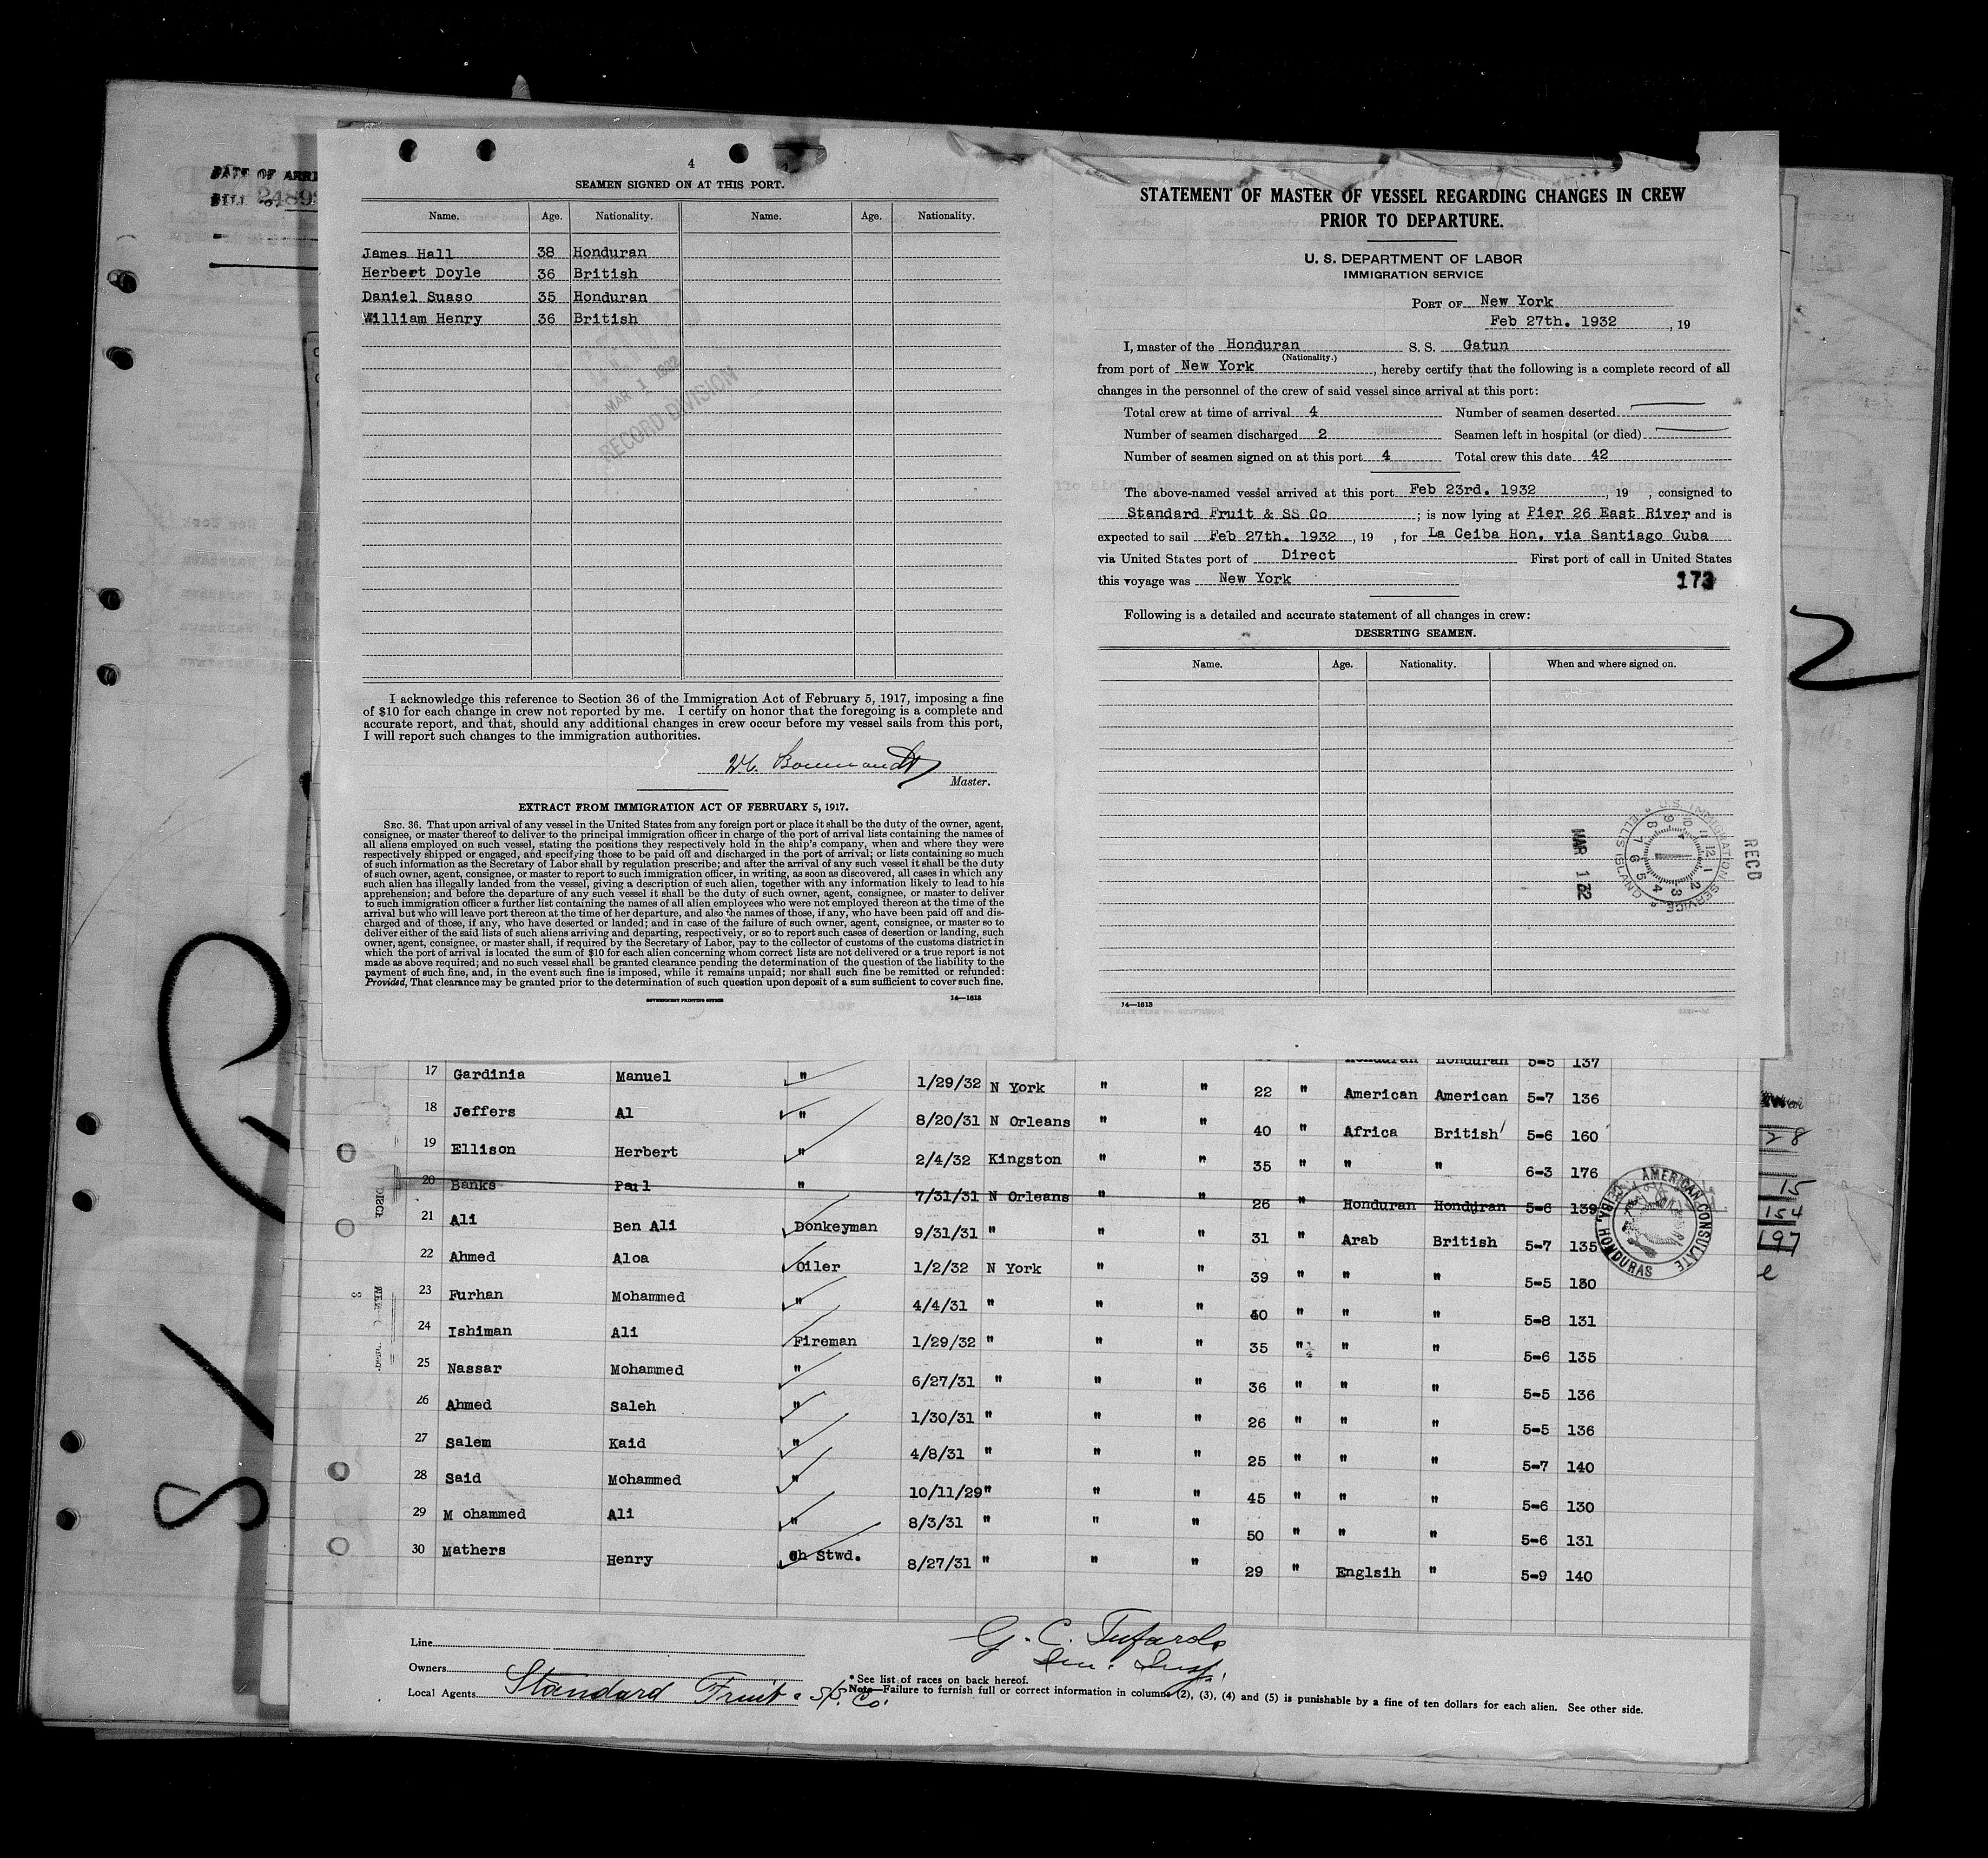 DATE OF ARRI
4
SEAMEN SIGNED ON AT THIS PORT.
Name. Age. Nationality. Name. Age. Nationality.
James Hall 38 Honduran
Herbert Doyle 36 British
Daniel Suaso 35 Honduran
William Henry 36 British
MAR 1 1932
RECORD DIVISION
I acknowledge this reference to Section 36 of the Immigration Act of February 5, 1917, imposing a fine
of $10 for each change in crew not reported by me. I certify on honor that the foregoing is a complete and
accurate report, and that, should any additional changes in crew occur before my vessel sails from this port,
I will report such changes to the immigration authorities.
Master.
EXTRACT FROM IMMIGRATION ACT OF FEBRUARY 5, 1917.
SEC. 36. That upon arrival of any vessel in the United States from any foreign port or place it shall be the duty of the owner, agent,
consignee, or master thereof to deliver to the principal immigration officer in charge of the port of arrival lists containing the names of
all aliens employed on such vessel, stating the positions they respectively hold in the ship's company, when and where they were
respectively shipped or engaged, and specifying those to be paid off and discharged in the port of arrival; or lists containing so much
of such information as the Secretary of Labor shall by regulation prescribe; and after the arrival of any such vessel it shall be the duty
of such owner, agent, consignee, or master to report to such immigration officer, in writing, as soon as discovered, all cases in which any
such alien has illegally landed from the vessel, giving a description of such alien, together with any information likely to lead to his
apprehension; and before the departure of any such vessel it shall be the duty of such owner, agent, consignee, or master to deliver
to such immigration officer a further list containing the names of all alien employees who were not employed thereon at the time of the
arrival but who will leave port thereon at the time of her departure, and also the names of those, if any, who have been paid off and dis-
charged and of those, if any, who have deserted or landed; and in case of the failure of such owner, agent, consignee, or master so to
deliver either of the said lists of such aliens arriving and departing, respectively, or so to report such cases of desertion or landing, such
owner, agent, consignee, or master shall, if required by the Secretary of Labor, pay to the collector of customs of the customs district in
which the port of arrival is located the sum of $10 for each alien concerning whom correct lists are not delivered or a true report is not
made as above required; and no such vessel shall be granted clearance pending the determination of the question of the liability to the
payment of such fine, and, in the event such fine is imposed, while it remains unpaid; nor shall such fine be remitted or refunded:
Provided, That clearance may be granted prior to the determination of such question upon deposit of a sum sufficient to cover such fine.
GOVERNMENT PRINTING OFFICE 14—1613
STATEMENT OF MASTER OF VESSEL REGARDING CHANGES IN CREW
PRIOR TO DEPARTURE.
U. S. DEPARTMENT OF LABOR
IMMIGRATION SERVICE
PORT OF New York
Feb 27th. 1932, 19
I, master of the Honduran S. S. Gatun
(Nationality.)
from port of New York, hereby certify that the following is a complete record of all
changes in the personnel of the crew of said vessel since arrival at this port:
Total crew at time of arrival 4 Number of seamen deserted
Number of seamen discharged 2 Seamen left in hospital (or died)
Number of seamen signed on at this port 4 Total crew this date 42
The above-named vessel arrived at this port Feb 23rd. 1932, 19 , consigned to
Standard Fruit & SS Co; is now lying at Pier 26 East River and is
expected to sail Feb 27th. 1932, 19 , for La Ceiba Hon. via Santiago Cuba
via United States port of Direct First port of call in United States
this voyage was New York 173
Following is a detailed and accurate statement of all changes in crew:
DESERTING SEAMEN.
Name. Age. Nationality. When and where signed on.
U.S. IMMIGRATION SERVICE ELLIS ISLAND
RECD
MAR 1 32
14—1613
Honduran Honduran 5-5 137
17 Gardinia Manuel " 1/29/32 N York " " 22 " American American 5-7 136
18 Jeffers Al " 8/20/31 N Orleans " " 40 " Africa British 5-6 160
19 Ellison Herbert " 2/4/32 Kingston " " 35 " " " 6-3 176
20 Banks Paul " 7/31/31 N Orleans " " 26 " Honduran Honduran 5-6 139
21 Ali Ben Ali Donkeyman 9/31/31 " " " 31 " Arab British 5-7 135
22 Ahmed Aloa Oiler 1/2/32 N York " " 39 " " " 5-5 130
23 Furhan Mohammed " 4/4/31 " " " 40 " " " 5-8 131
24 Ishiman Ali Fireman 1/29/32 " " " 35 " " " 5-6 135
25 Nassar Mohammed " 6/27/31 " " " 36 " " " 5-5 136
26 Ahmed Saleh " 1/30/31 " " " 26 " " " 5-5 136
27 Salem Kaid " 4/8/31 " " " 25 " " " 5-7 140
28 Said Mohammed " 10/11/29 " " " 45 " " " 5-6 130
29 M ohammed Ali " 8/3/31 " " " 50 " " " 5-6 131
30 Mathers Henry Ch Stwd. 8/27/31 " " " 29 " Englsih " 5-9 140
AMERICAN CONSULATE CEIBA, HONDURAS
28
15
154
197
Line
Owners
Local Agents Standard Fruit & S/S. Co.
G. C. Tufaro
Imm. Insp.
* See list of races on back hereof.
Note—Failure to furnish full or correct information in columns (2), (3), (4) and (5) is punishable by a fine of ten dollars for each alien. See other side.